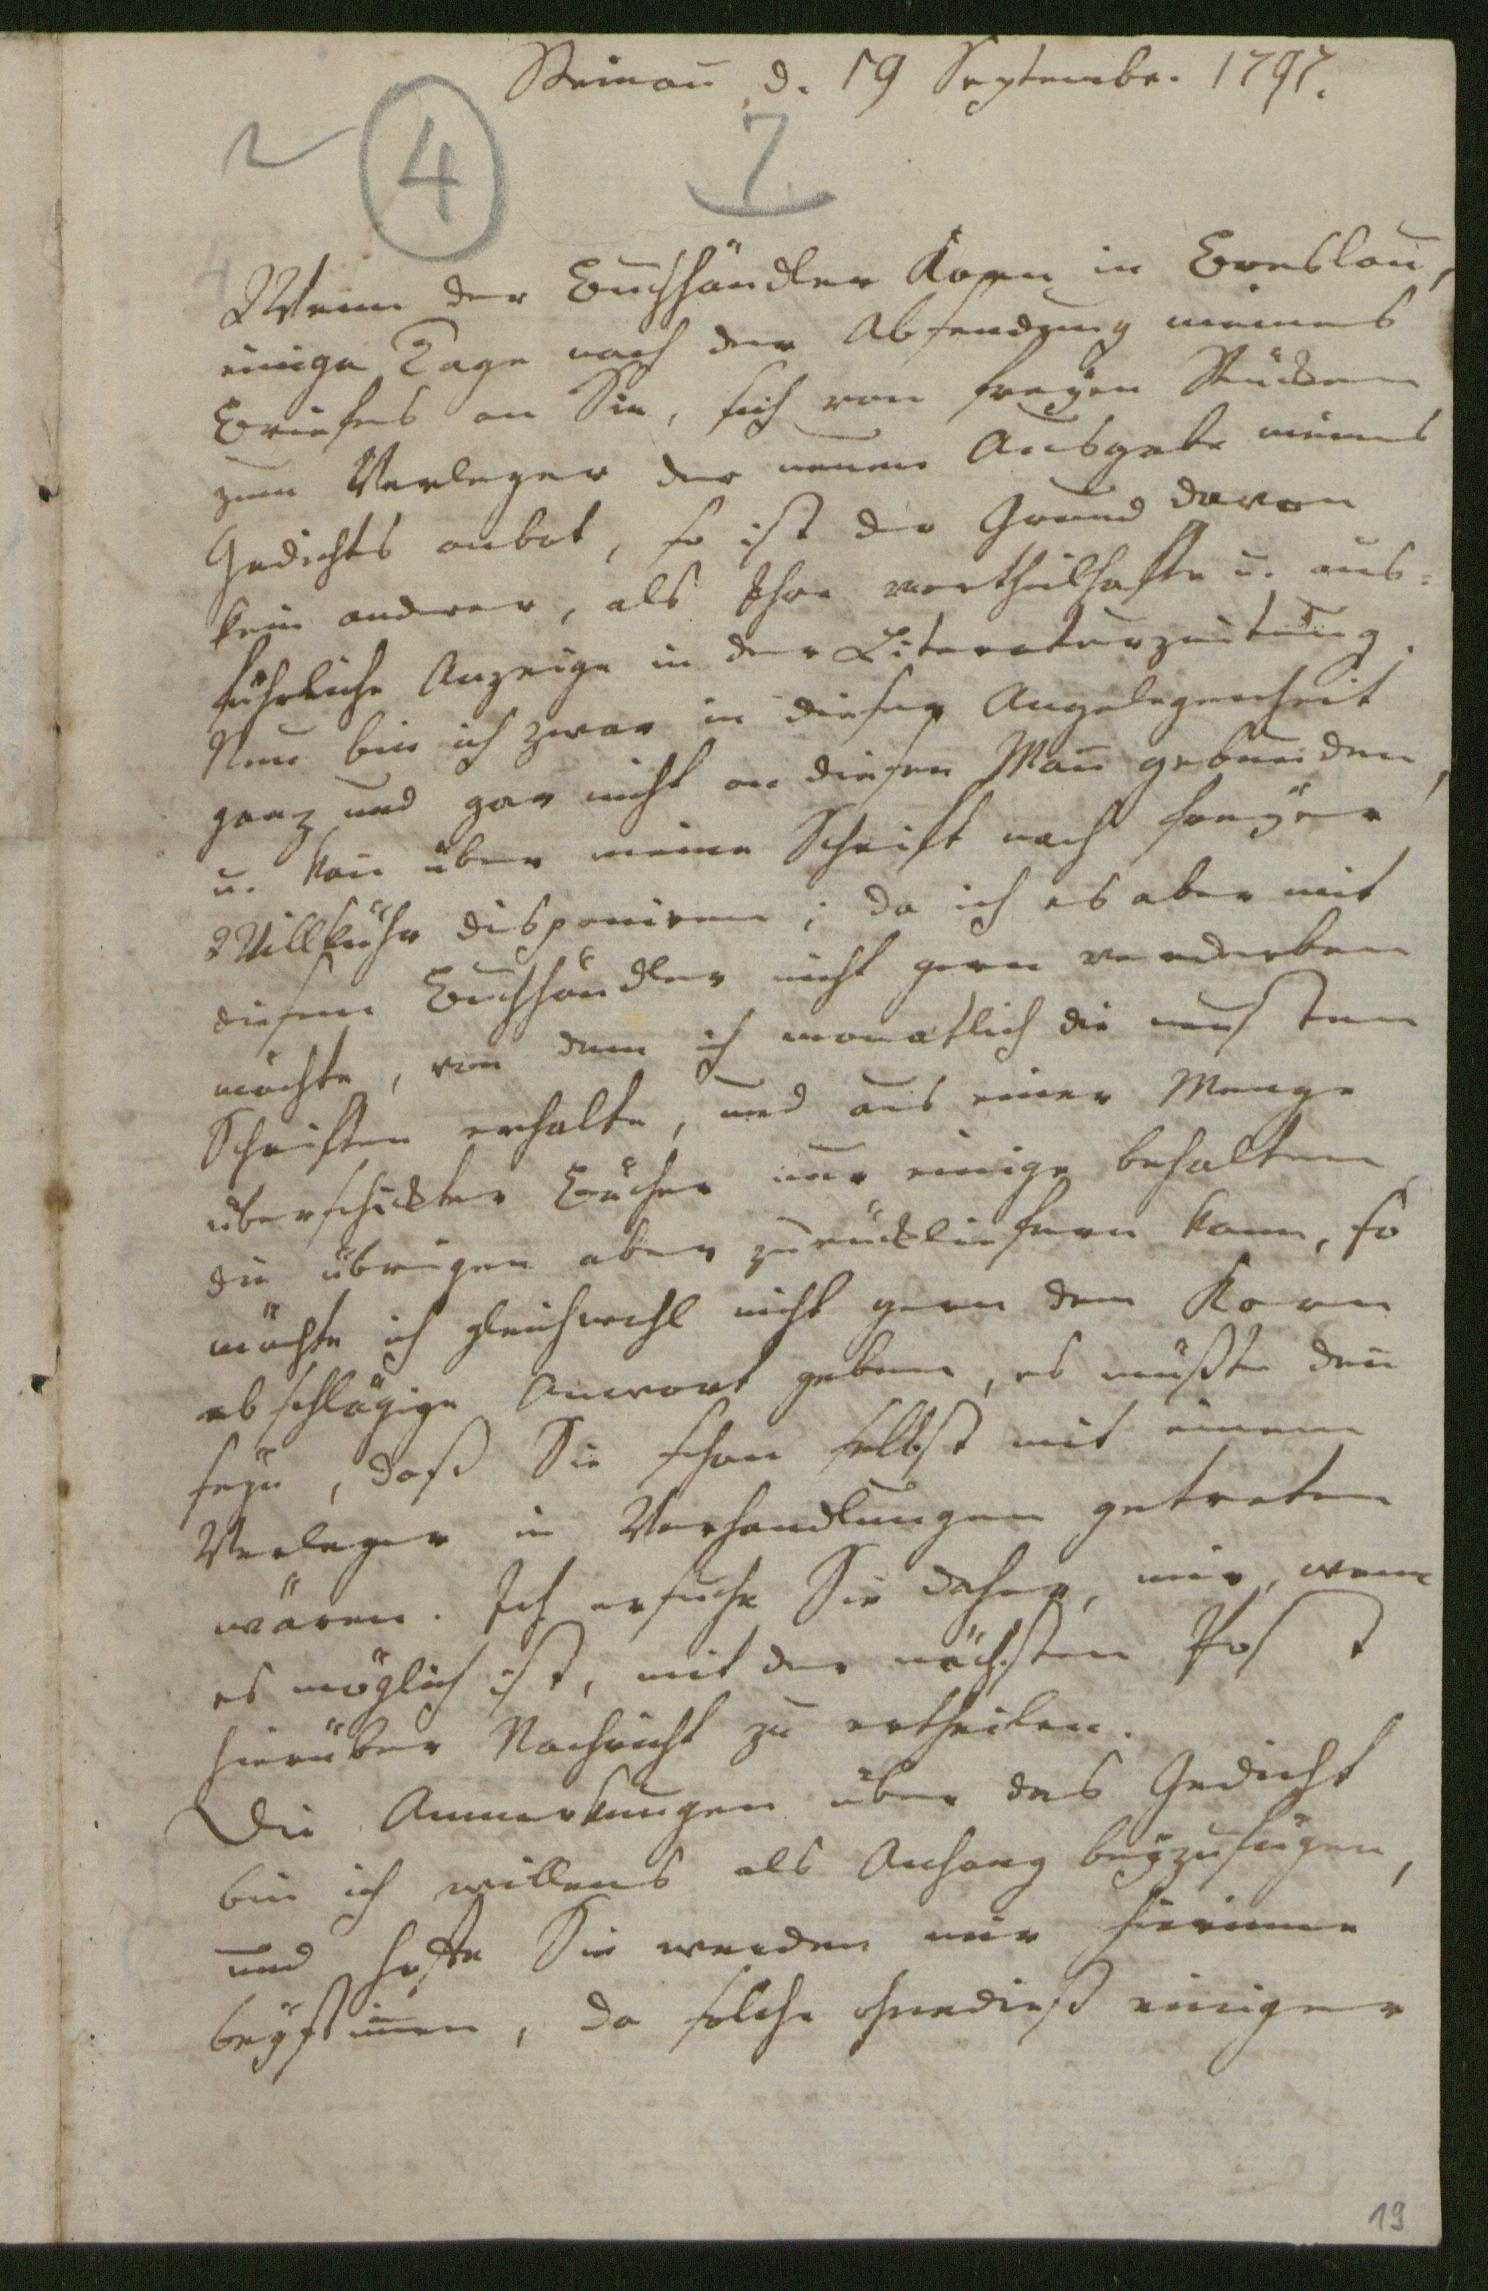 Steinau, d. 19 September 1797.
4
7
Wenn der Buchhändler Korn in Breslau,
einige Tage nach der Absendung meines
Briefes an Sie, sich von freyen Stücken
zum Verleger der neuen Ausgabe meines
Gedichts anbot, so ist der Grund davon
kein anderer, als Ihre vortheilhafte u. aus-
führliche Anzeige in der Literaturzeitung.
Nun bin ich zwar in dieser Angelegenheit
ganz und gar nicht an diesen Mañ gebunden,
u. kañ über meine Schrift nach freyer
Willkühr disponiren; da ich es aber mit
diesem Buchhändler nicht gern verderben
möchte, von dem ich monatlich die neusten
Schriften erhalte, und aus einer Menge
überschickter Bücher nur einige behalten
die übrigen aber zurückliefern kann, so
möchte ich gleichwohl nicht gern dem Korn
abschlägige Anwort geben, es müßte deñ
seyn, daß Sie schon selbst mit einem
Verleger in Verhandlungen getreten
wären. Ich ersuche Sie daher, mir, wenn
es möglich ist, mit der nächsten Post
hierüber Nachricht zu ertheilen.
Die Anmerkungen über das Gedicht
bin ich willens als Anhang beyzufügen,
und hoffe Sie werden mir hierinne
beystim̃en, da solche ohnedieß einiger
19